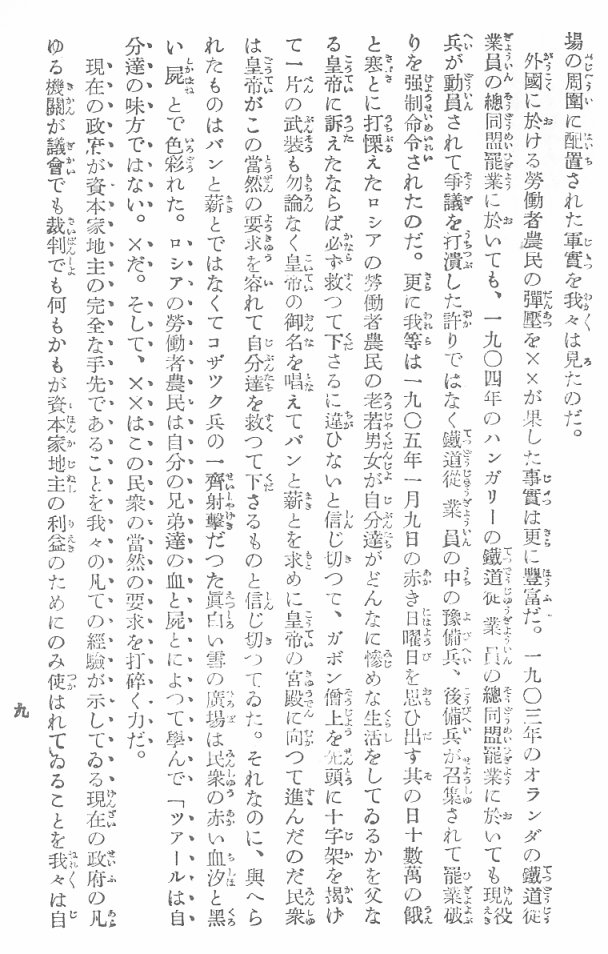 場の周圍に配置された軍隊を我々は見たのだ。
外國に於ける勞働者農民の彈壓を××が果した事實は更に豐富だ。一九〇三年のオランダの鐵道從
業員の總同盟罷業に於いても、一九〇四年のハンガリーの鐵道從業員の總同盟罷業に於いても現役
兵が動員されて爭議を打潰した許りではなく鐵道從業員の中の豫備兵、後備兵が召集されて罷業破
りを强制命令されたのだ。更に我等は一九〇五年一月九日の赤き日曜日を思ひ出す其の日十數萬の餓
と寒とに打慄えたロシアの勞働者農民の老若男女が自分達がどんなに慘めな生活をしてゐるかを父な
る皇帝に訴えたならば必ず救つて下さるに違ひないと信じ切つて、ガボン僧上を先頭に十字架を揭げ
て一片の武裝も勿論なく皇帝の御名を唱えてパンと薪とを求めに皇帝の宮殿に向つて進んだのだ民衆
は皇帝がこの當然の要求を容れて自分達を救つて下さるものと信じ切つてゐた。それなのに、與へら
れたものはパンと薪とではなくてコザツク兵の一齊射擊だつた眞白い雪の廣場は民衆の赤い血汐と黑
い屍とで色彩れた。ロシアの勞働者農民は自分の兄弟達の血と屍とによつて學んで「ツアールは自
分達の味方ではない。×だ。そして、××はこの民衆の當然の要求を打碎く力だ。
現在の政府が資本家地主の完全な手先であることを我々の凡ての經驗が示してゐる現在の政府の凡
ゆる機關が議會でも裁判でも何もかもが資本家地主の利益のためにのみ使はれてゐることを我々は自
九